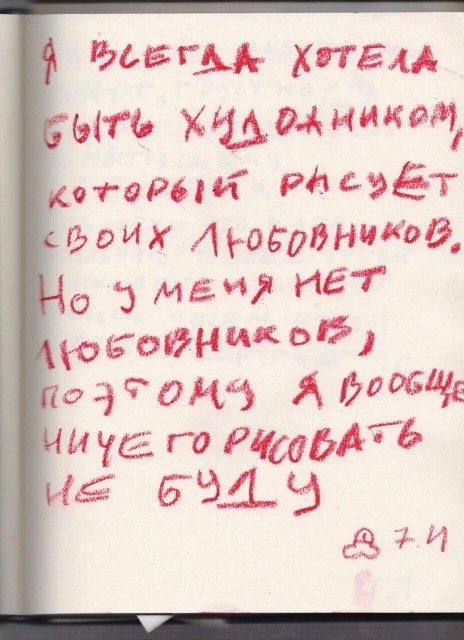 Я ВСЕГДА ХОТЕЛА
БЫТЬ ХУДОЖНИКОМ,
КОТОРЫЙ РИСУЕТ
СВОИХ ЛЮБОВНИКОВ.
НО У МЕНЯ НЕТ
ЛЮБОВНИКОВ,
ПОЭТОМУ Я ВООБЩЕ
НИЧЕГО РИСОВАТЬ
НЕ БУДУ
7.И